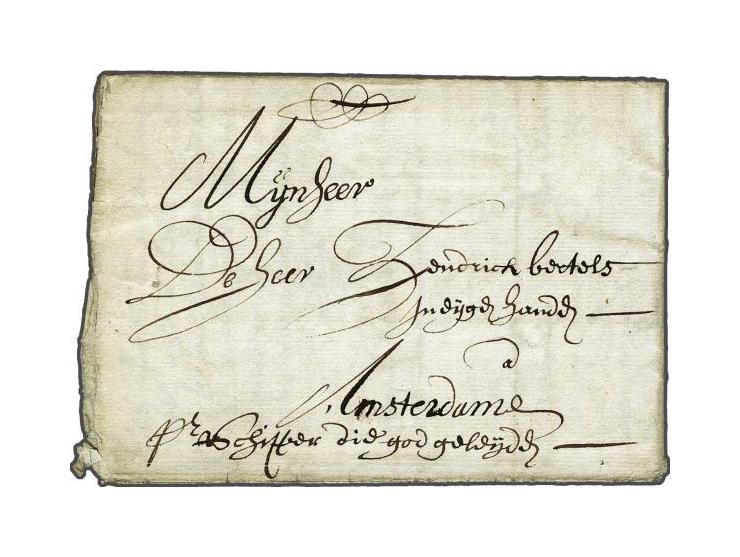 Mijnheer
De heer Hendrick bertels
In eygen handen
a
Amsterdame
pr Schipper die god geleyde